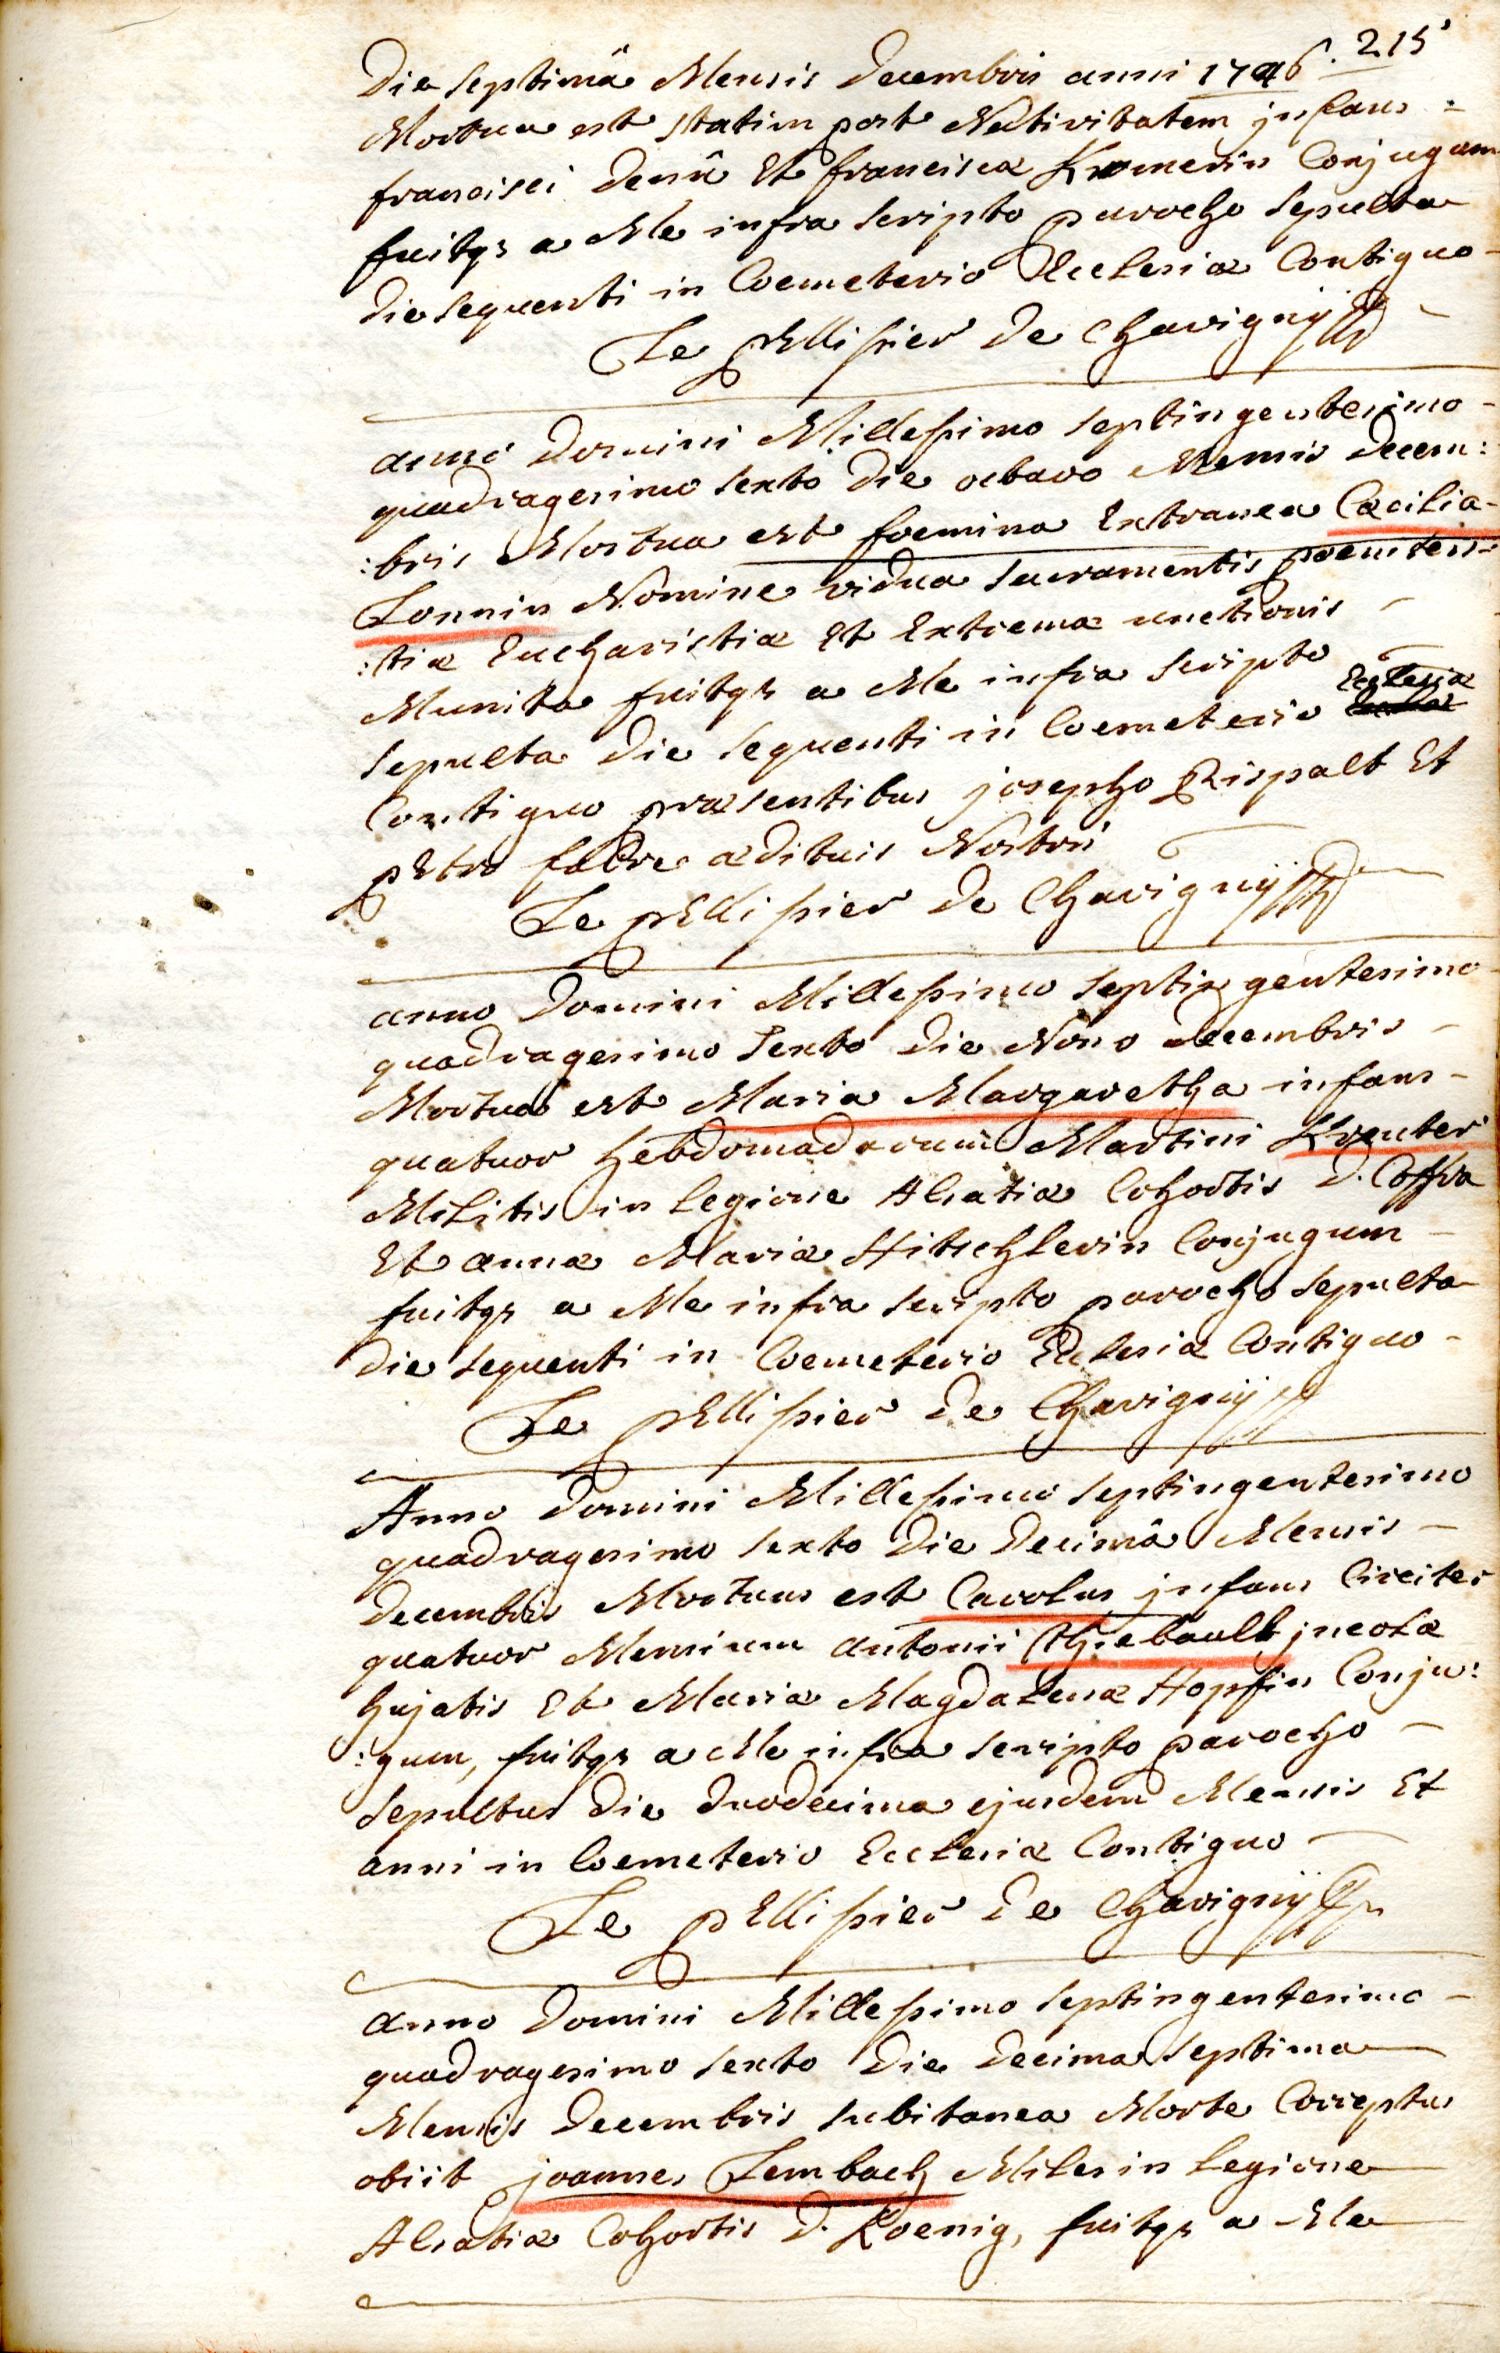 215
Die septimâ Mensis Decembris anni 1746.
Mortua est statim post Nativitatem infans -
francisci Denû Et franciscæ Kromerin Conjugum
fuitq; a Me infra scripto parocho sepulta
die sequenti in Coemeterio Ecclesiæ Contiguo -
Le pEllissier de Chavignÿ
anno Domini Millessimo septingentesimo -
quadragesimo sexto die octavo Mensis Decem:
:bris Mortua est foemina Extranea Cæcilia -
Lonnin Nomine vidua sacramentis poeniten-
:tiæ Eucharistiæ Et Extremæ unctionis -
Munita fuitq; a Me infra scripto -
sepulta die sequenti in Coemeterio Ecclesiæ
Contiguo præsentibus josepho Rispalt Et
pEtro fabre ædituis Nostris
Le pEllissier de Chavignÿ
anno Domini Millessimo septingentesimo
quadragesimo sexto die Nono decembris -
Mortua est Maria Margaretha infans -
quatuor hebdomadarum Martini Kreuter
Militis in legione Alsatiæ Cohortis D. Coffra
Et annæ Mariæ Hitschlerin Conjugum -
fuitq; a Me infra scripto parocho sepulta
die sequenti in Coemeterio Ecclesiæ Contiguo -
Le pEllissier de Chavignÿ
Anno Domini Millessimo septingentesimo
quadragesimo sexto die decimâ Mensis -
decembris Mortuus est Carolus jnfans Circiter
quatuor Mensium antonii thiebault jncolæ
hujatis Et Mariæ Magdalenæ Hopfin Conju:
:gum, fuitq; a Me infra scripto parocho -
sepultus die duodecima ejusdem Mensis Et
anni in Coemeterio Ecclesiæ Contiguo -
Le pEllissier de Chavignÿ
anno Domini Millessimo septingentesimo -
quadragesimo sexto die decima septima
Mensis Decembris subitanea Morte Correptus
obiit joannes Lembach Miles in legione
Alsatiæ Cohortis D. Koenig, fuitq; a Me